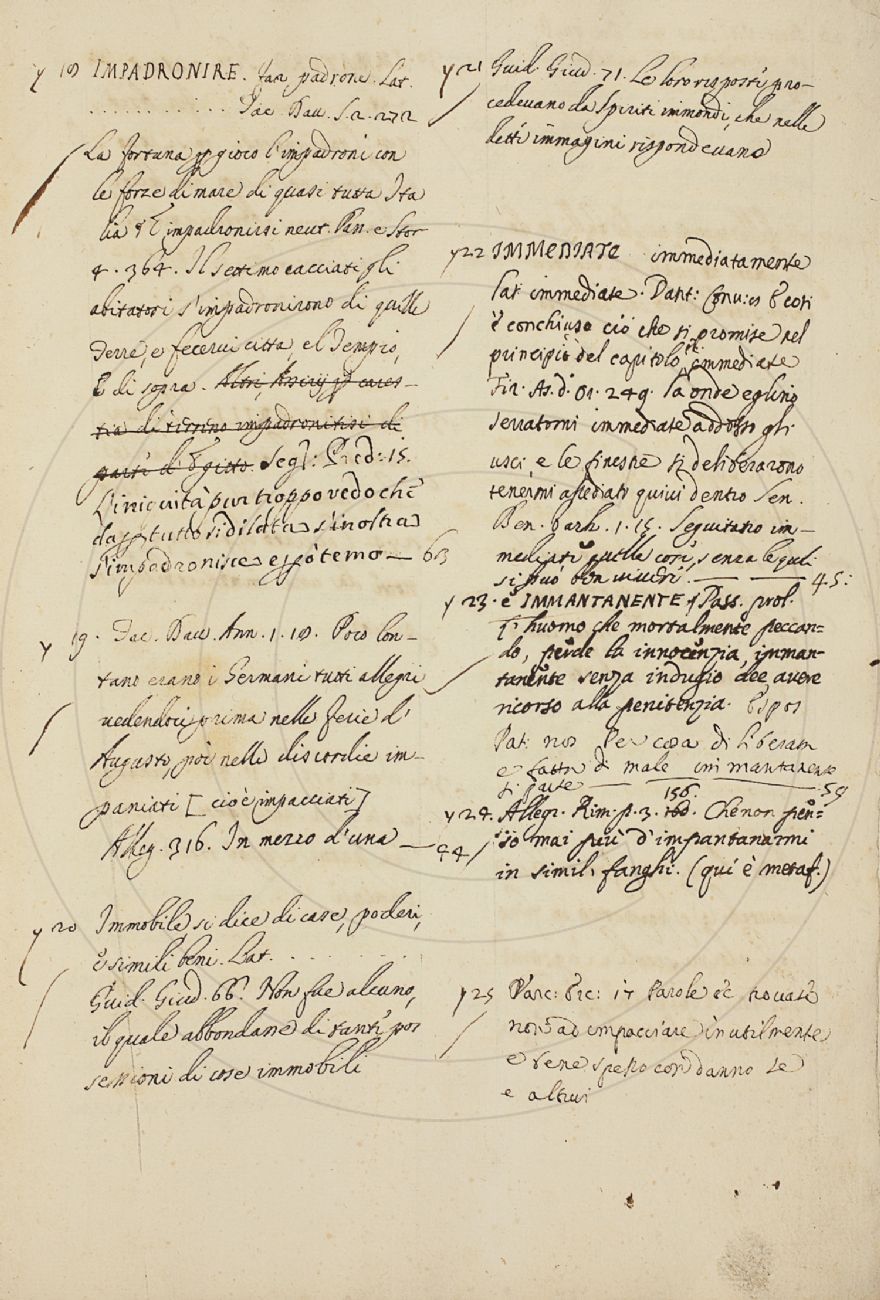 y 18 IMPADRONIRE. Far padrone. Lat.
. . . . . . . . . . . . Tac. Dav. S. 2. 272
La fortuna p gioco l'impadronì con
le forze di mare di quasi tutta Ita
lia & impadronirsi neut. Pass. e Stor
4. 364. Il settimo cacciati gli
abitatori s'impadronirono di quelle
Terre, e fecervi citta, e'l Tempio,
E di sopra. Altri, Assirij p cares-
tia di terreno impadronitisi di
parte d'Egitto. Segr: Pred: 15.
L'iniquità pur troppo vedo che
da p tutto si dilata, s'inoltra
s'impadronisce, e p ò temo — 63
y 19. Tac. Dav. Ann. 1. 18. Poco lon-
tano erano i Germani tutti allegri
vedendoci prima nelle ferie d'
Augusto, poi nelle discordie im-
paniati [cioè impacciati]
Alleg. 316. In mezzo d'una — 44
y 20 Immobile, si dice di case, poderi,
e simili beni. Lat. . . . . . .
Guid. Giud. 66. Non fue alcuno,
il quale abbondasse di tanti pos
sessioni di cose immobili
y 21 Guid. Giud. 71. Le loro risposte pro-
cedevano da Spiriti immondi, che nelle
detti immagini rispondevano
y 22 IMMEDIATE immediatamente
Lat. immediate. Dant: Conv: E così
è conchiuso ciò che si promise nel
principio del capitolo immediate
Fir. As. d' Or. 249. là onde eglino
serratomi immediate addosso gli
usci, e le finestre si deliberarono
tenermi assediato quivi dentro Sen.
Ben. Varh. 1. 15. Seguitano im-
mediate quelle cose, senza le quali
si può ben vivere. — — 45:
y 23. e IMMANTANENTE Pass. prol.
L'huomo che mortalmente peccan-
do, perde la innocenzia, immanta-
tanente senza indugio dee avere
ricorso alla penitenzia. Espos
Pat. nos
e fatti di male immantanente
si parte — 59
156.
y 24. Allegr. Rim. p. 3. 160. Che non pen-
so mai più d'impantanarmi
in simili fanghi. (qui è metaf.)
y 25 Varc: Erc: 17 Parole &c trovate
non ad impacciare inutilmente
e bene spesso con danno se
e altrui